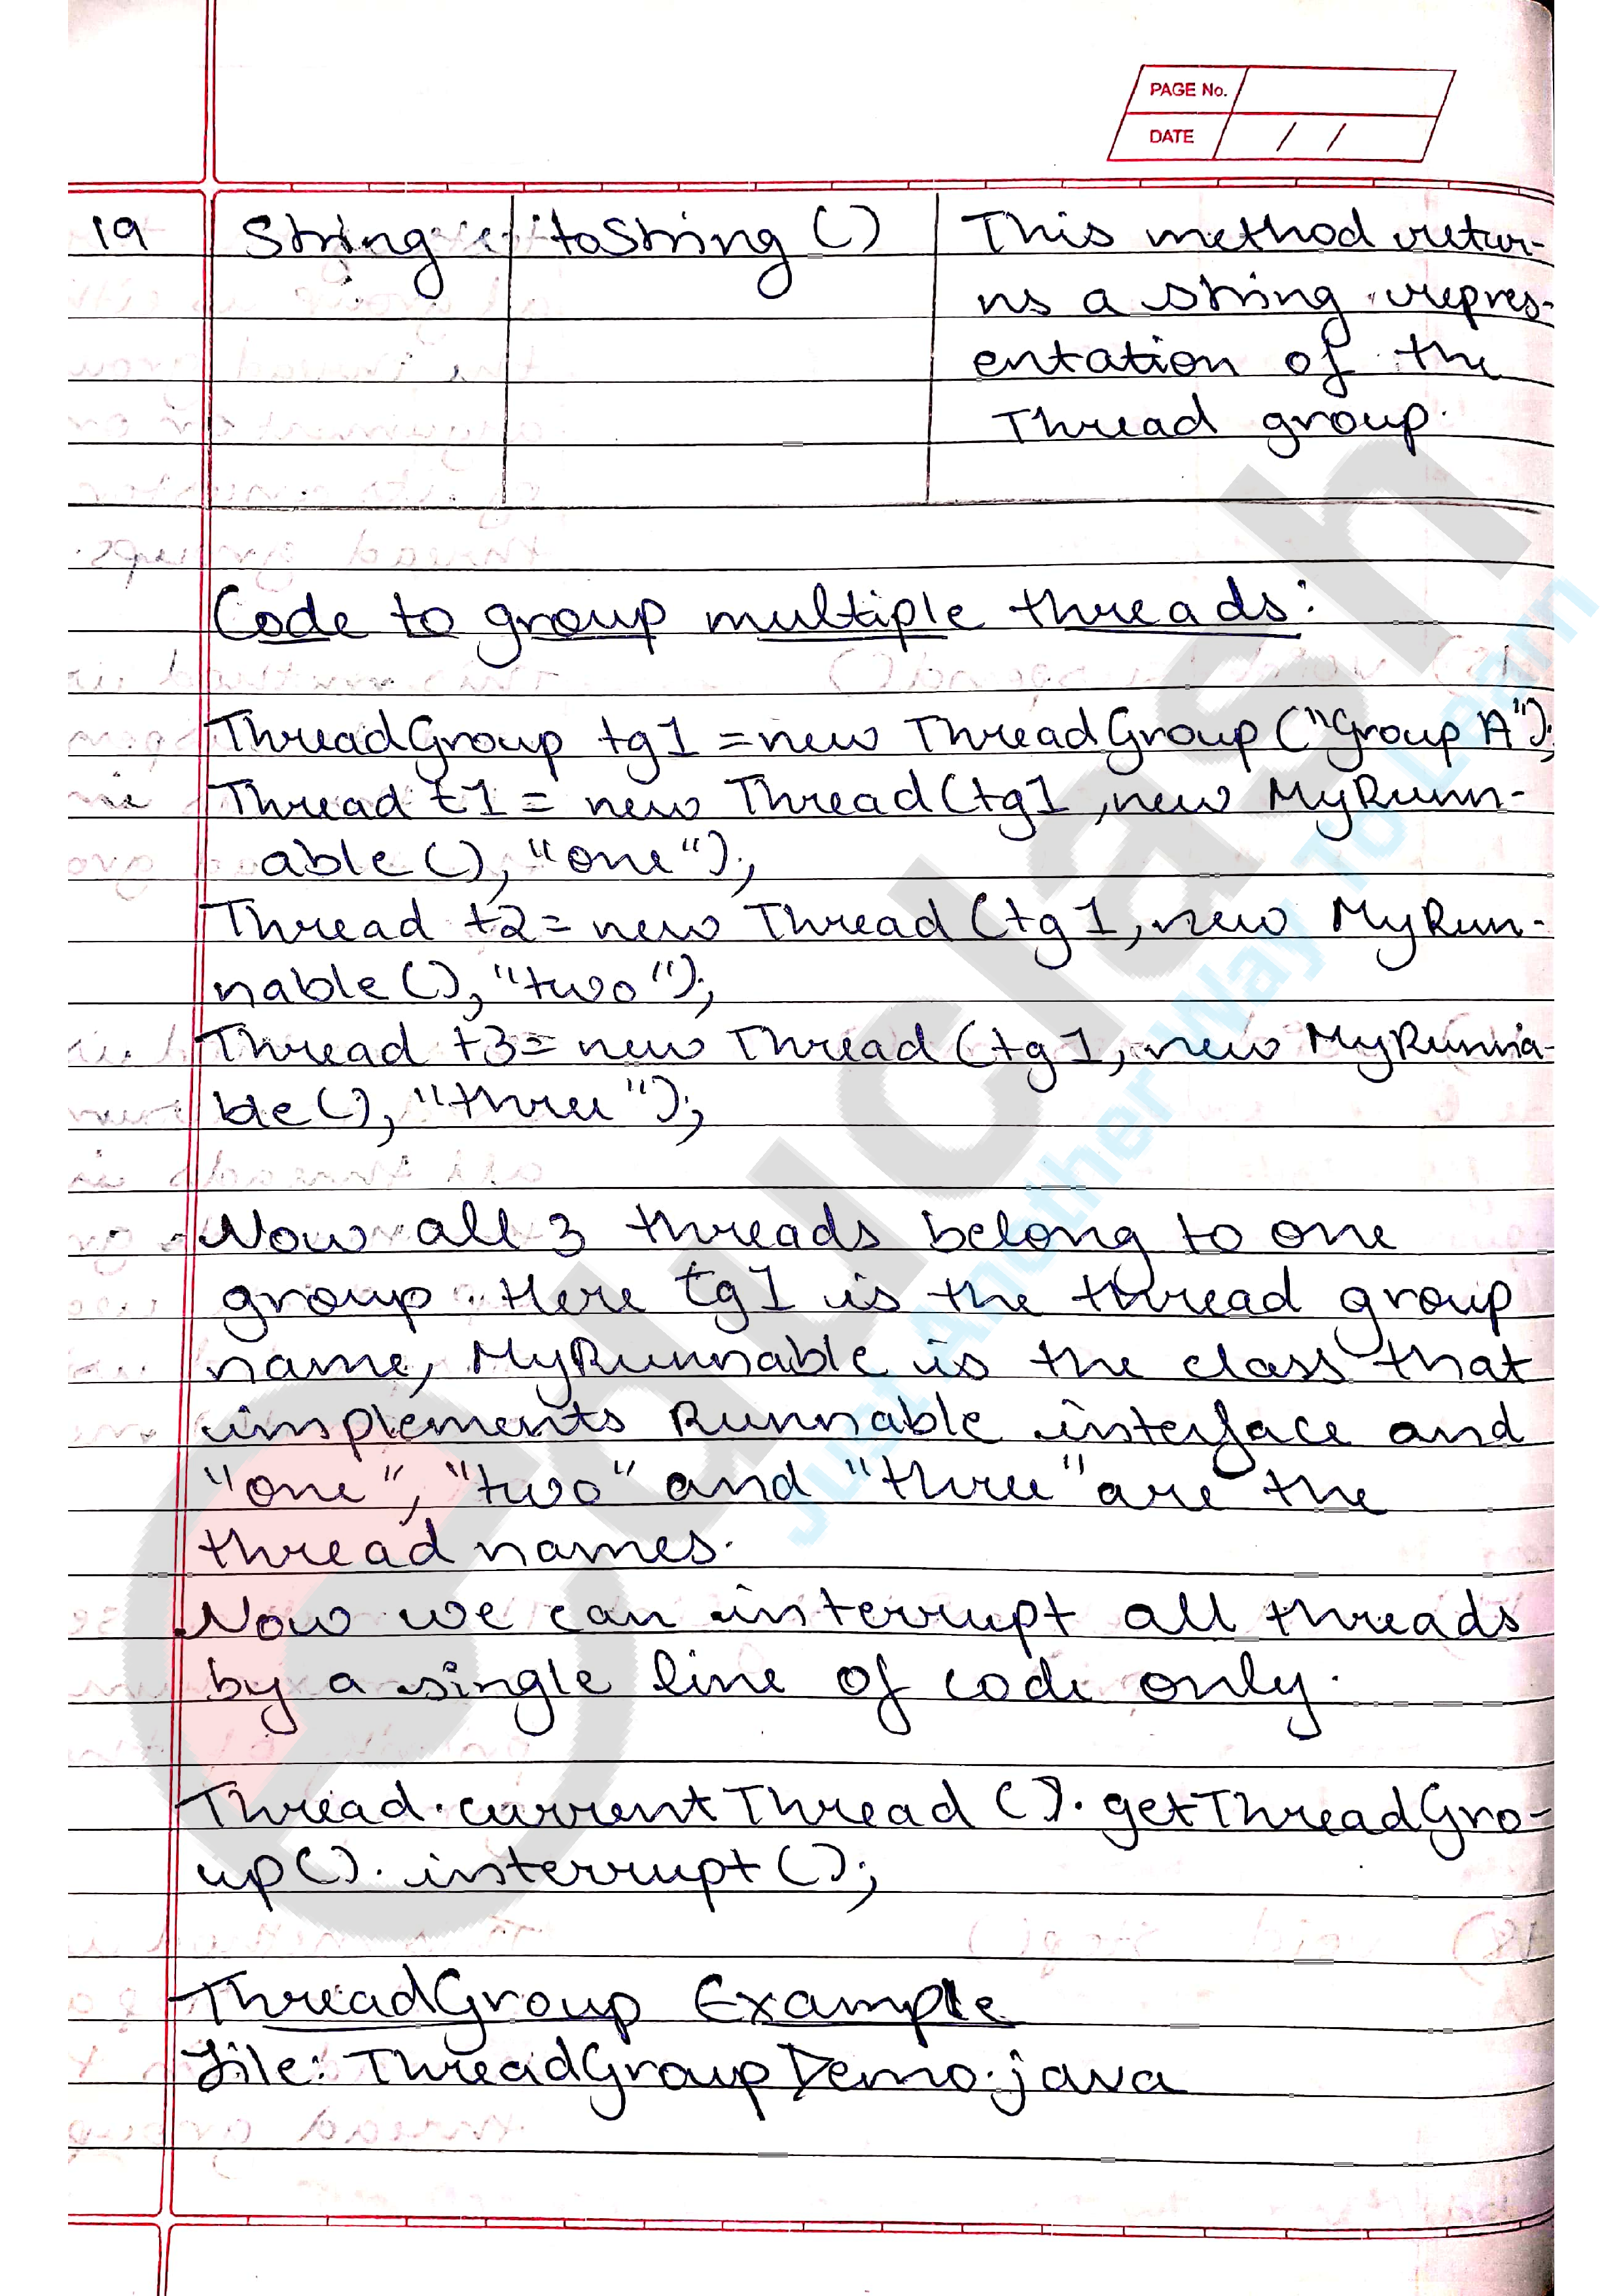 PAGE No.
DATE / /
19 String toString () This method retur-
ns a string repres-
entation of the
Thread group.
Code to group multiple threads:
ThreadGroup tg1 = new ThreadGroup ("Group A");
Thread t1 = new Thread (tg1, new MyRunn-
able (), "one");
Thread t2 = new Thread (tg1, new MyRun-
nable (), "two");
Thread t3 = new Thread (tg1, new MyRunna-
ble (), "three");
Now all 3 threads belong to one
group. Here tg1 is the thread group
name, MyRunnable is the class that
implements Runnable interface and
"one", "two" and "three" are the
thread names.
Now we can interrupt all threads
by a single line of code only.
Thread.currentThread ().getThreadGro-
up().interrupt ();
ThreadGroup Example
File: ThreadGroupDemo.java
educlash
Just Another Way To Learn